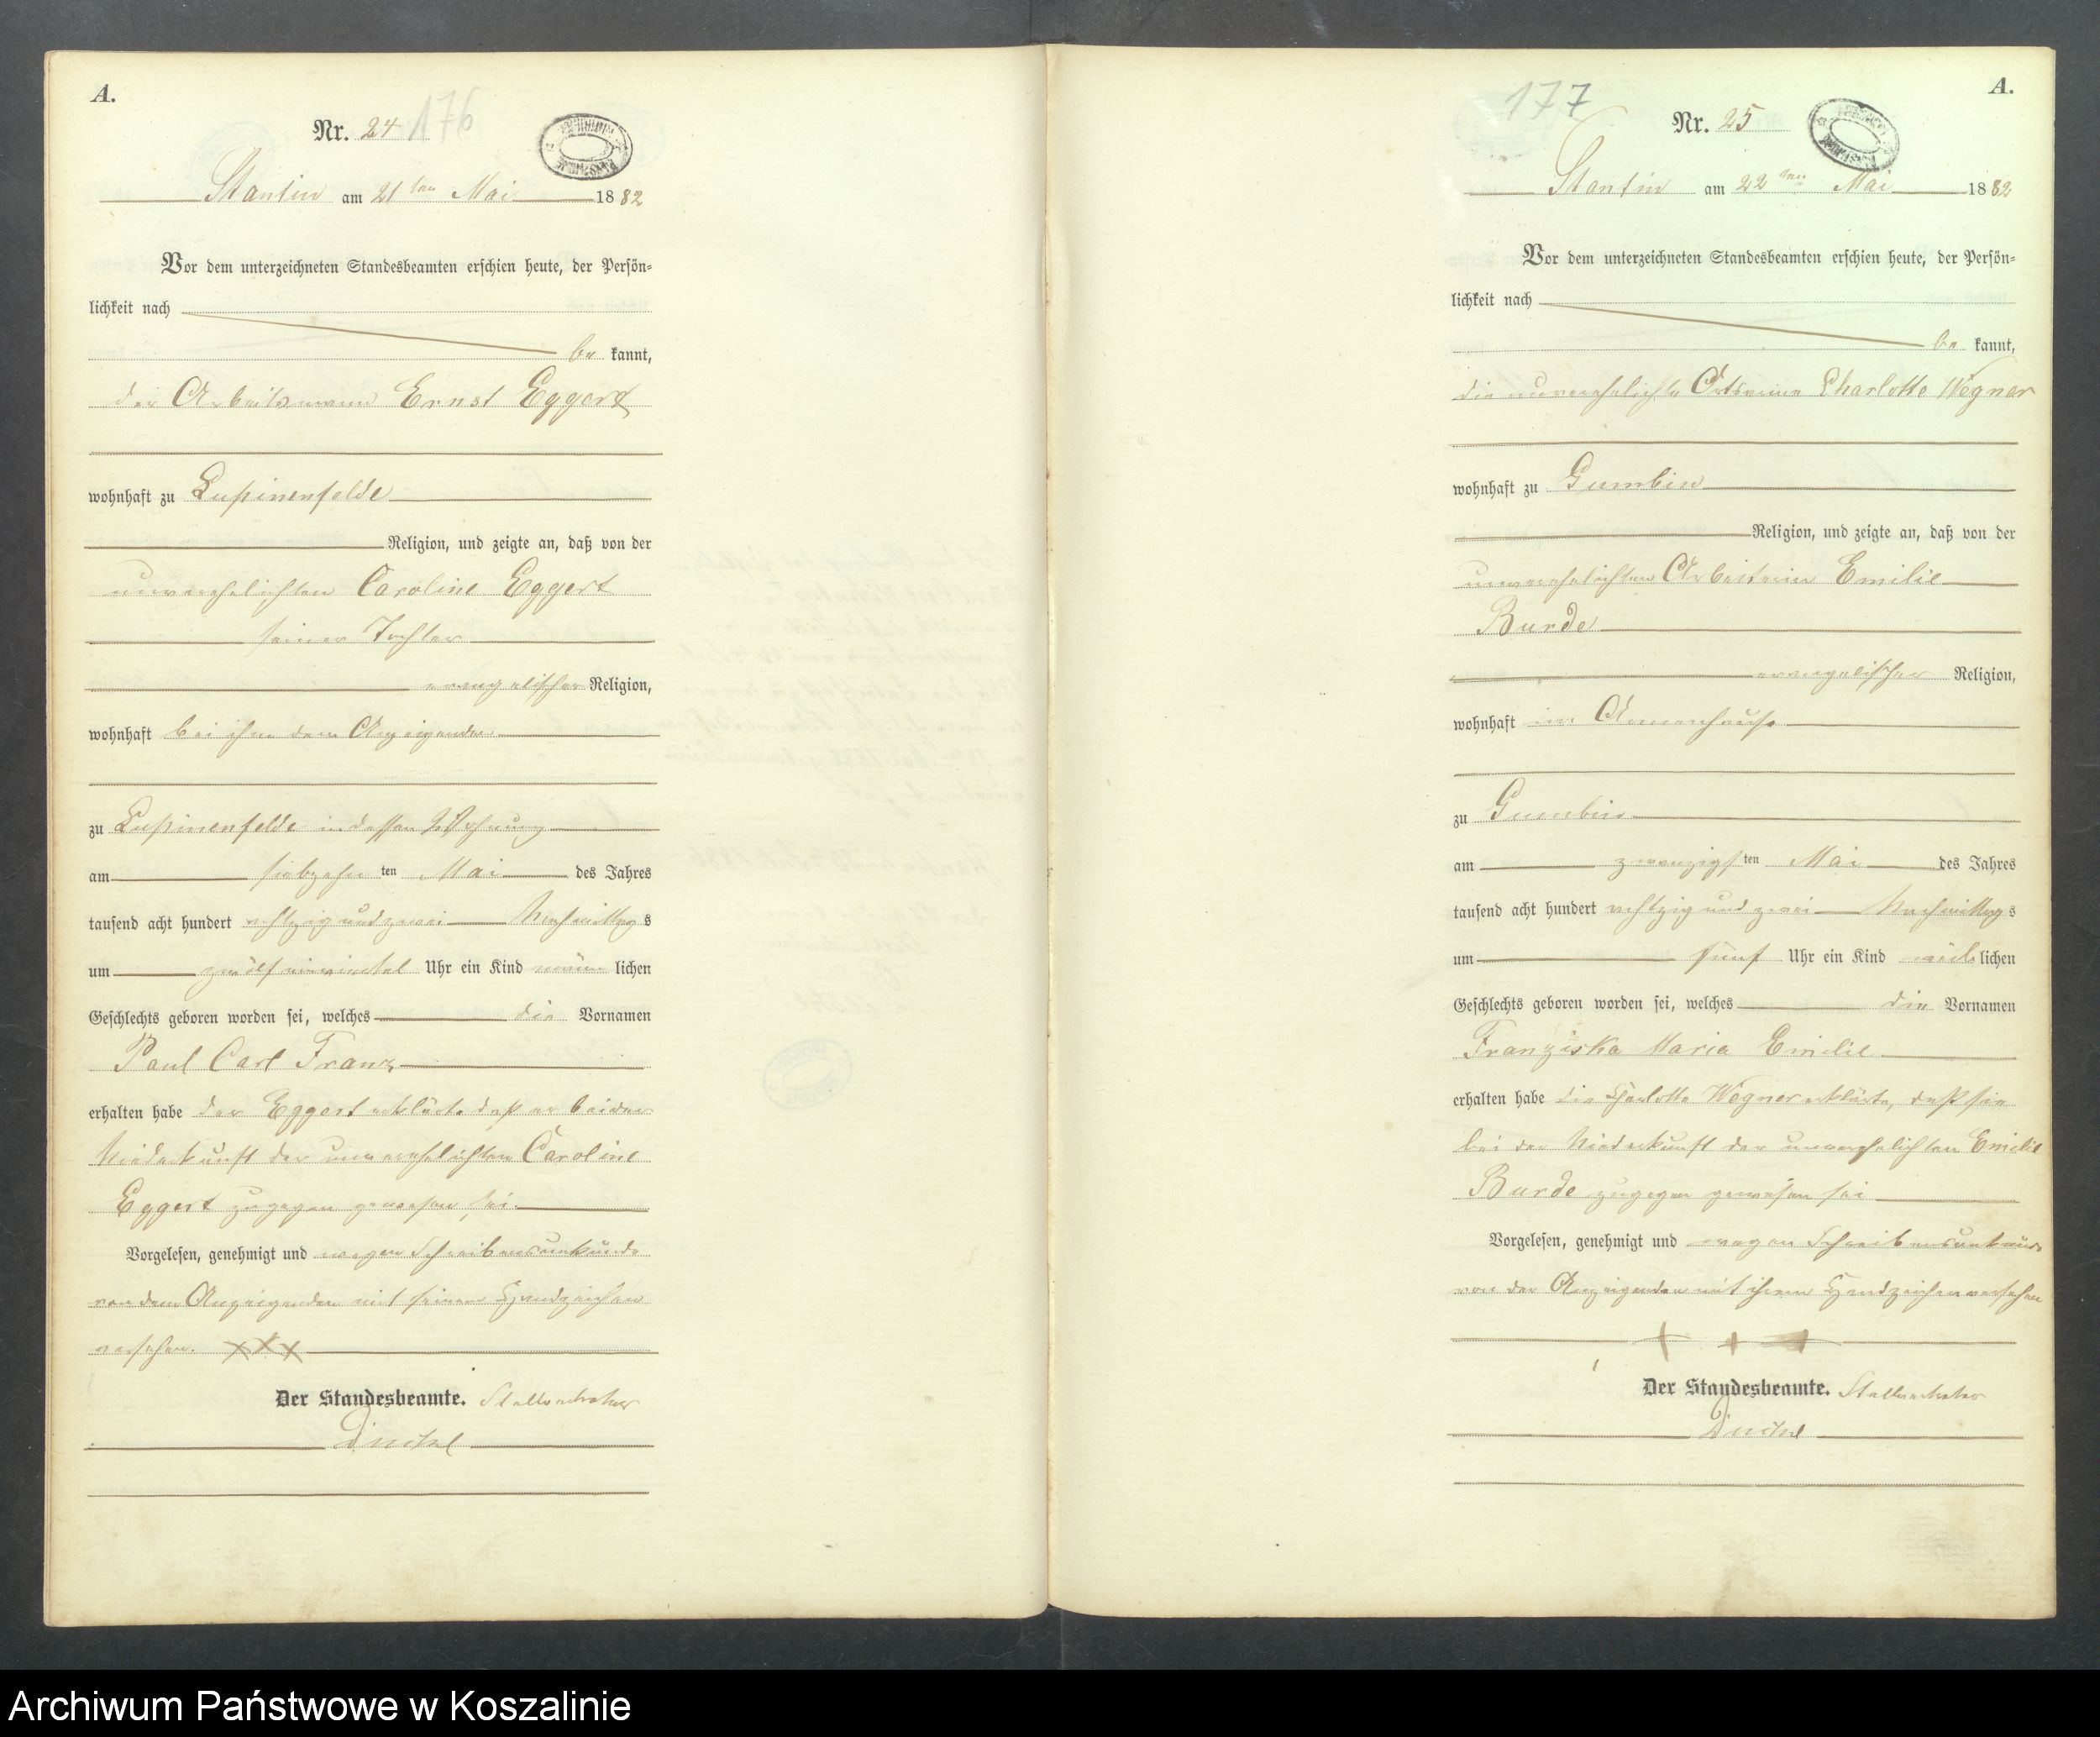 A.
Nr. 24 176
Stantin am 21ten Mai 1882
Vor dem unterzeichneten Standesbeamten erschien heute, der Persön=
lichkeit nach
be kannt,
der Arbeitsmann Ernst Eggert
wohnhaft zu Lupinenfelde
Religion, und zeigte an, daß von der
unverehelichten Caroline Eggert
seiner Tochter
evangelischer Religion,
wohnhaft bei ihm dem Anzeigenden
zu Lupinenfelde in dessen Wohnung
am siebzehn ten Mai des Jahres
tausend acht hundert achtzig und zwei Nachmittag s
um zwölf einviertel Uhr ein Kind männ lichen
Geschlechts geboren worden sei, welches die Vornamen
Paul Carl Franz
erhalten habe der Eggert erklärte daß er bei der
Niederkunft der unverehelichten Caroline
Eggert zugegen gewesen sei.
Vorgelesen, genehmigt und wegen Schreibensunkunde
von dem Anzeigenden mit seinem Handzeichen
versehen. XXX
Der Standesbeamte. Stellvertreter
A.
177
Nr. 25
Stantin am 22ten Mai 1882
Vor dem unterzeichneten Standesbeamten erschien heute, der Persön=
lichkeit nach
be kannt,
die unverehelichte Ortsarme Charlotte Wegner
wohnhaft zu Gumbin
Religion, und zeigte an, daß von der
unverehelichten Arbeiterin Emilie
Burde
evangelischer Religion,
wohnhaft im Armenhause
zu Gumbin
am zwanzigs ten Mai des Jahres
tausend acht hundert achtzig und zwei Nachmittag s
um fünf Uhr ein Kind weib lichen
Geschlechts geboren worden sei, welches die Vornamen
Franziska Maria Emilie
erhalten habe die Charlotte Wegner erklärte, daß sie
bei der Niederkunft der unverehelichten Emilie
Burde zugegen gewesen sei
Vorgelesen, genehmigt und wegen Schreibensunkunde
von der Anzeigenden mit ihrem Handzeichen versehen
+ + +
Der Standesbeamte. Stellvertreter
Archiwum Państwowe w Koszalinie